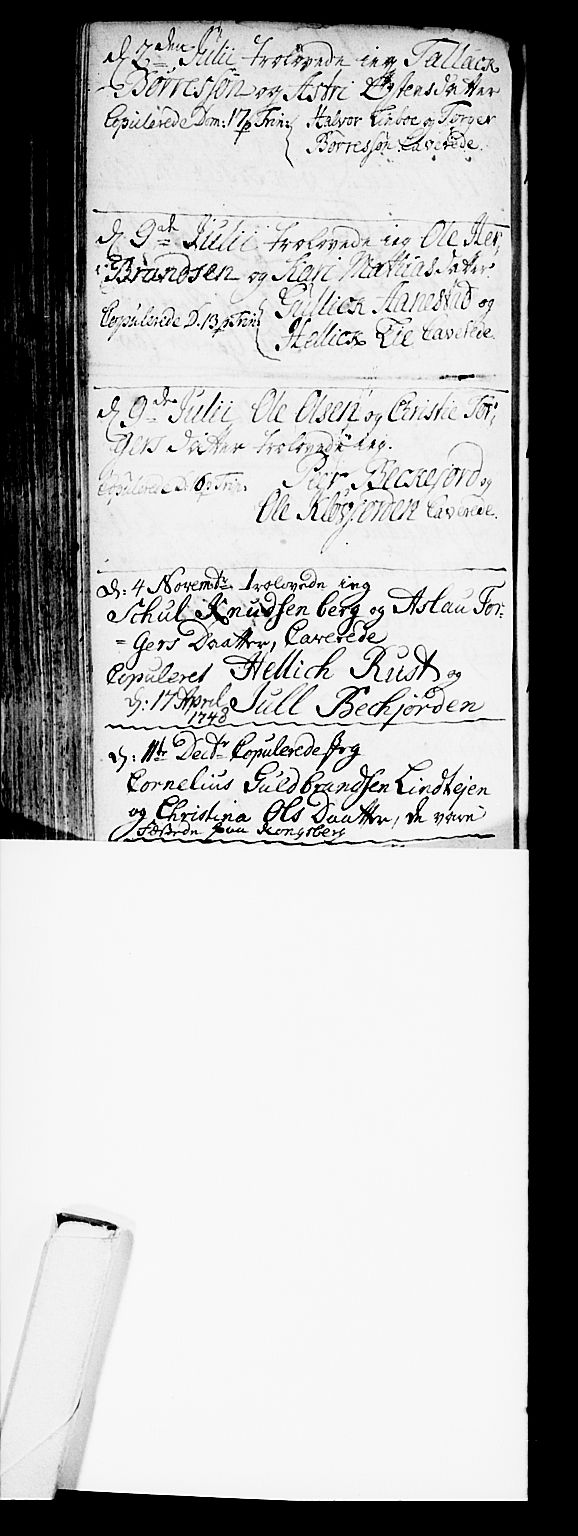 d. 2den Julii trolovede ieg Tallack
Børresson og Astri Østensdatter
Copulerede Dom: 17 p Trin: Halvor Enboe og Torger
Børresson Caverede.
d. 9de Julii trolovede ieg Ole Her,
Brandsen og Kari Mathiasdatter
Copulerede D. 13 p Trin: Gullick Aanestad og
Hellick Lie Caverede.
d. 9de Julii Ole Olsen og Christie Tor,
gers datter trolovede ieg.
Copulerede D. p Trin. Peer Beckefiord og
Ole Kløvfiorden Caverede.
d: 4 Novembr: trolovede ieg
Schul Knudsen berg og Aslau Tor:
= Gers Daatter, Caverede
Copuleret Hellich Rust og
d: 17 April Jull Bechjorden
1748
d: 11te Decbr Copulerede Jeg
Cornelius Guldbrandsen Lindtejen
og Christina Ols Daatter, de vare
paa Kongsberg